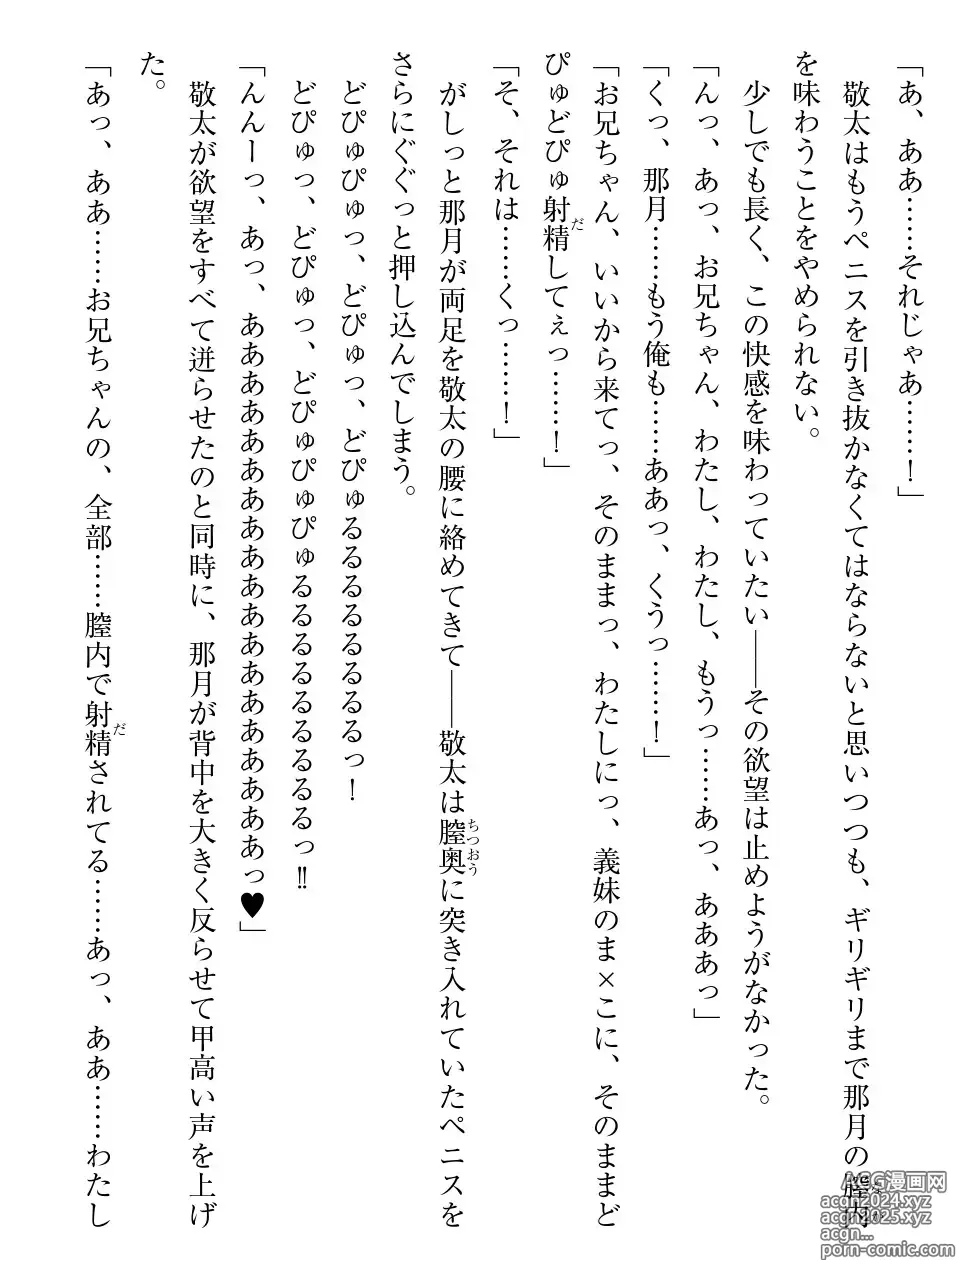 「あ、ああ……それじゃあ……！」
　敬太はもうペニスを引き抜かなくてはならないと思いつつも、ギリギリまで那月の膣内
を味わうことをやめられない。
　少しでも長く、この快感を味わっていたい――その欲望は止めようがなかった。
「んっ、あっ、お兄ちゃん、わたし、わたし、もうっ……あっ、あああっ」
「くっ、那月……もう俺も……ああっ、くうっ……！」
「お兄ちゃん、いいから来てっ、そのままっ、わたしにっ、義妹のま×こに、そのままど
ぴゅどぴゅ射精してぇっ……！」
「そ、それは……くっ……！」
　がしっと那月が両足を敬太の腰に絡めてきて――敬太は膣奥に突き入れていたペニスを
さらにぐぐっと押し込んでしまう。
　どぴゅぴゅっ、どぴゅっ、どぴゅるるるるるるるるっ！
　どぴゅっ、どぴゅっ、どぴゅぴゅぴゅるるるるるるるるるっ‼
「んんーっ、あっ、あああああああああああああああああああっ♥」
　敬太が欲望をすべて迸らせたのと同時に、那月が背中を大きく反らせて甲高い声を上げ
た。
「あっ、ああ……お兄ちゃんの、全部……膣内で射精されてる……あっ、ああ……わたし
ACG漫画网
acgn2024.xyz
acgn2025.xyz
acgn...
porn-comic.com